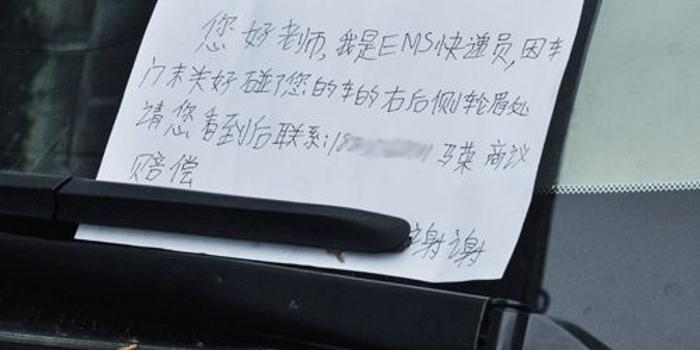 您好老师,我是EMS快递员,因车
门未关好碰了您的车的右后侧轮眉处
请您看到后联系:1 马荣 商议
赔偿
谢谢